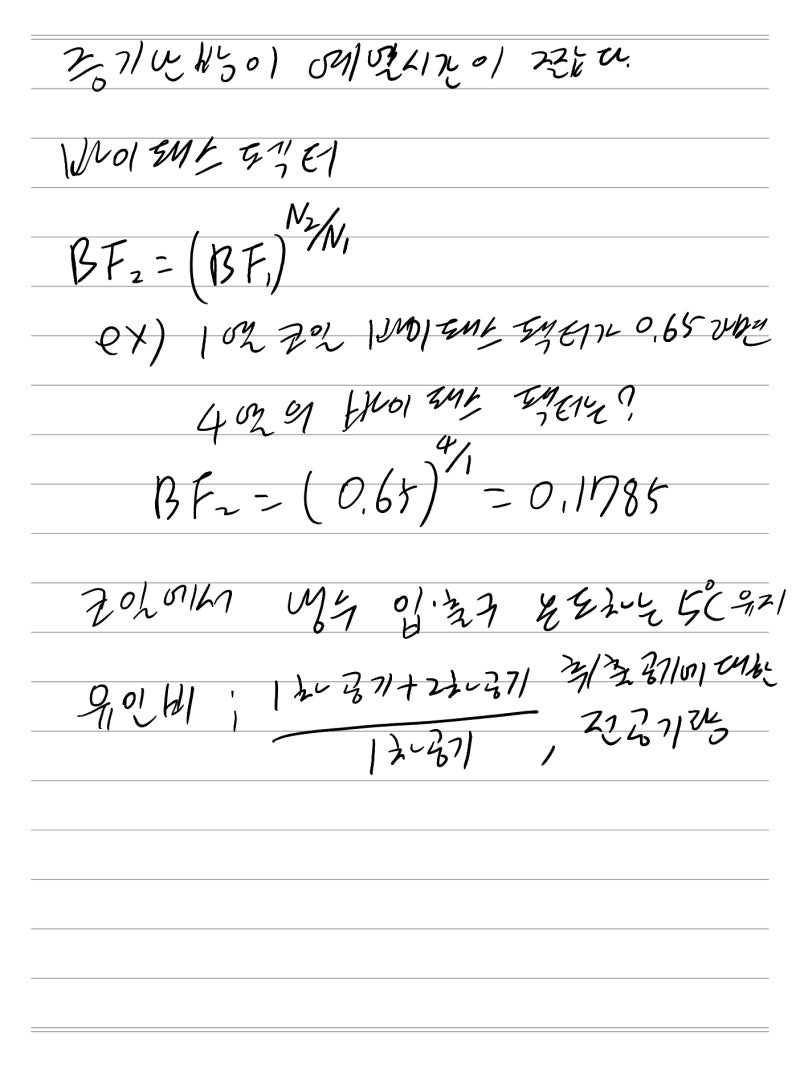 증기난방이 예열시간이 짧다.
바이패스 팩터
BF₂ = (BF₁)^N₂/N₁
ex) 1열 코일 바이패스 팩터가 0.65 라면
4열의 바이패스 팩터는?
BF₂ = (0.65)^4/1 = 0.1785
코일에서 냉수 입·출구 온도차는 5℃ 유지
유인비 ; 1차공기+2차공기 / 1차공기 , 취출공기에 대한
전공기량